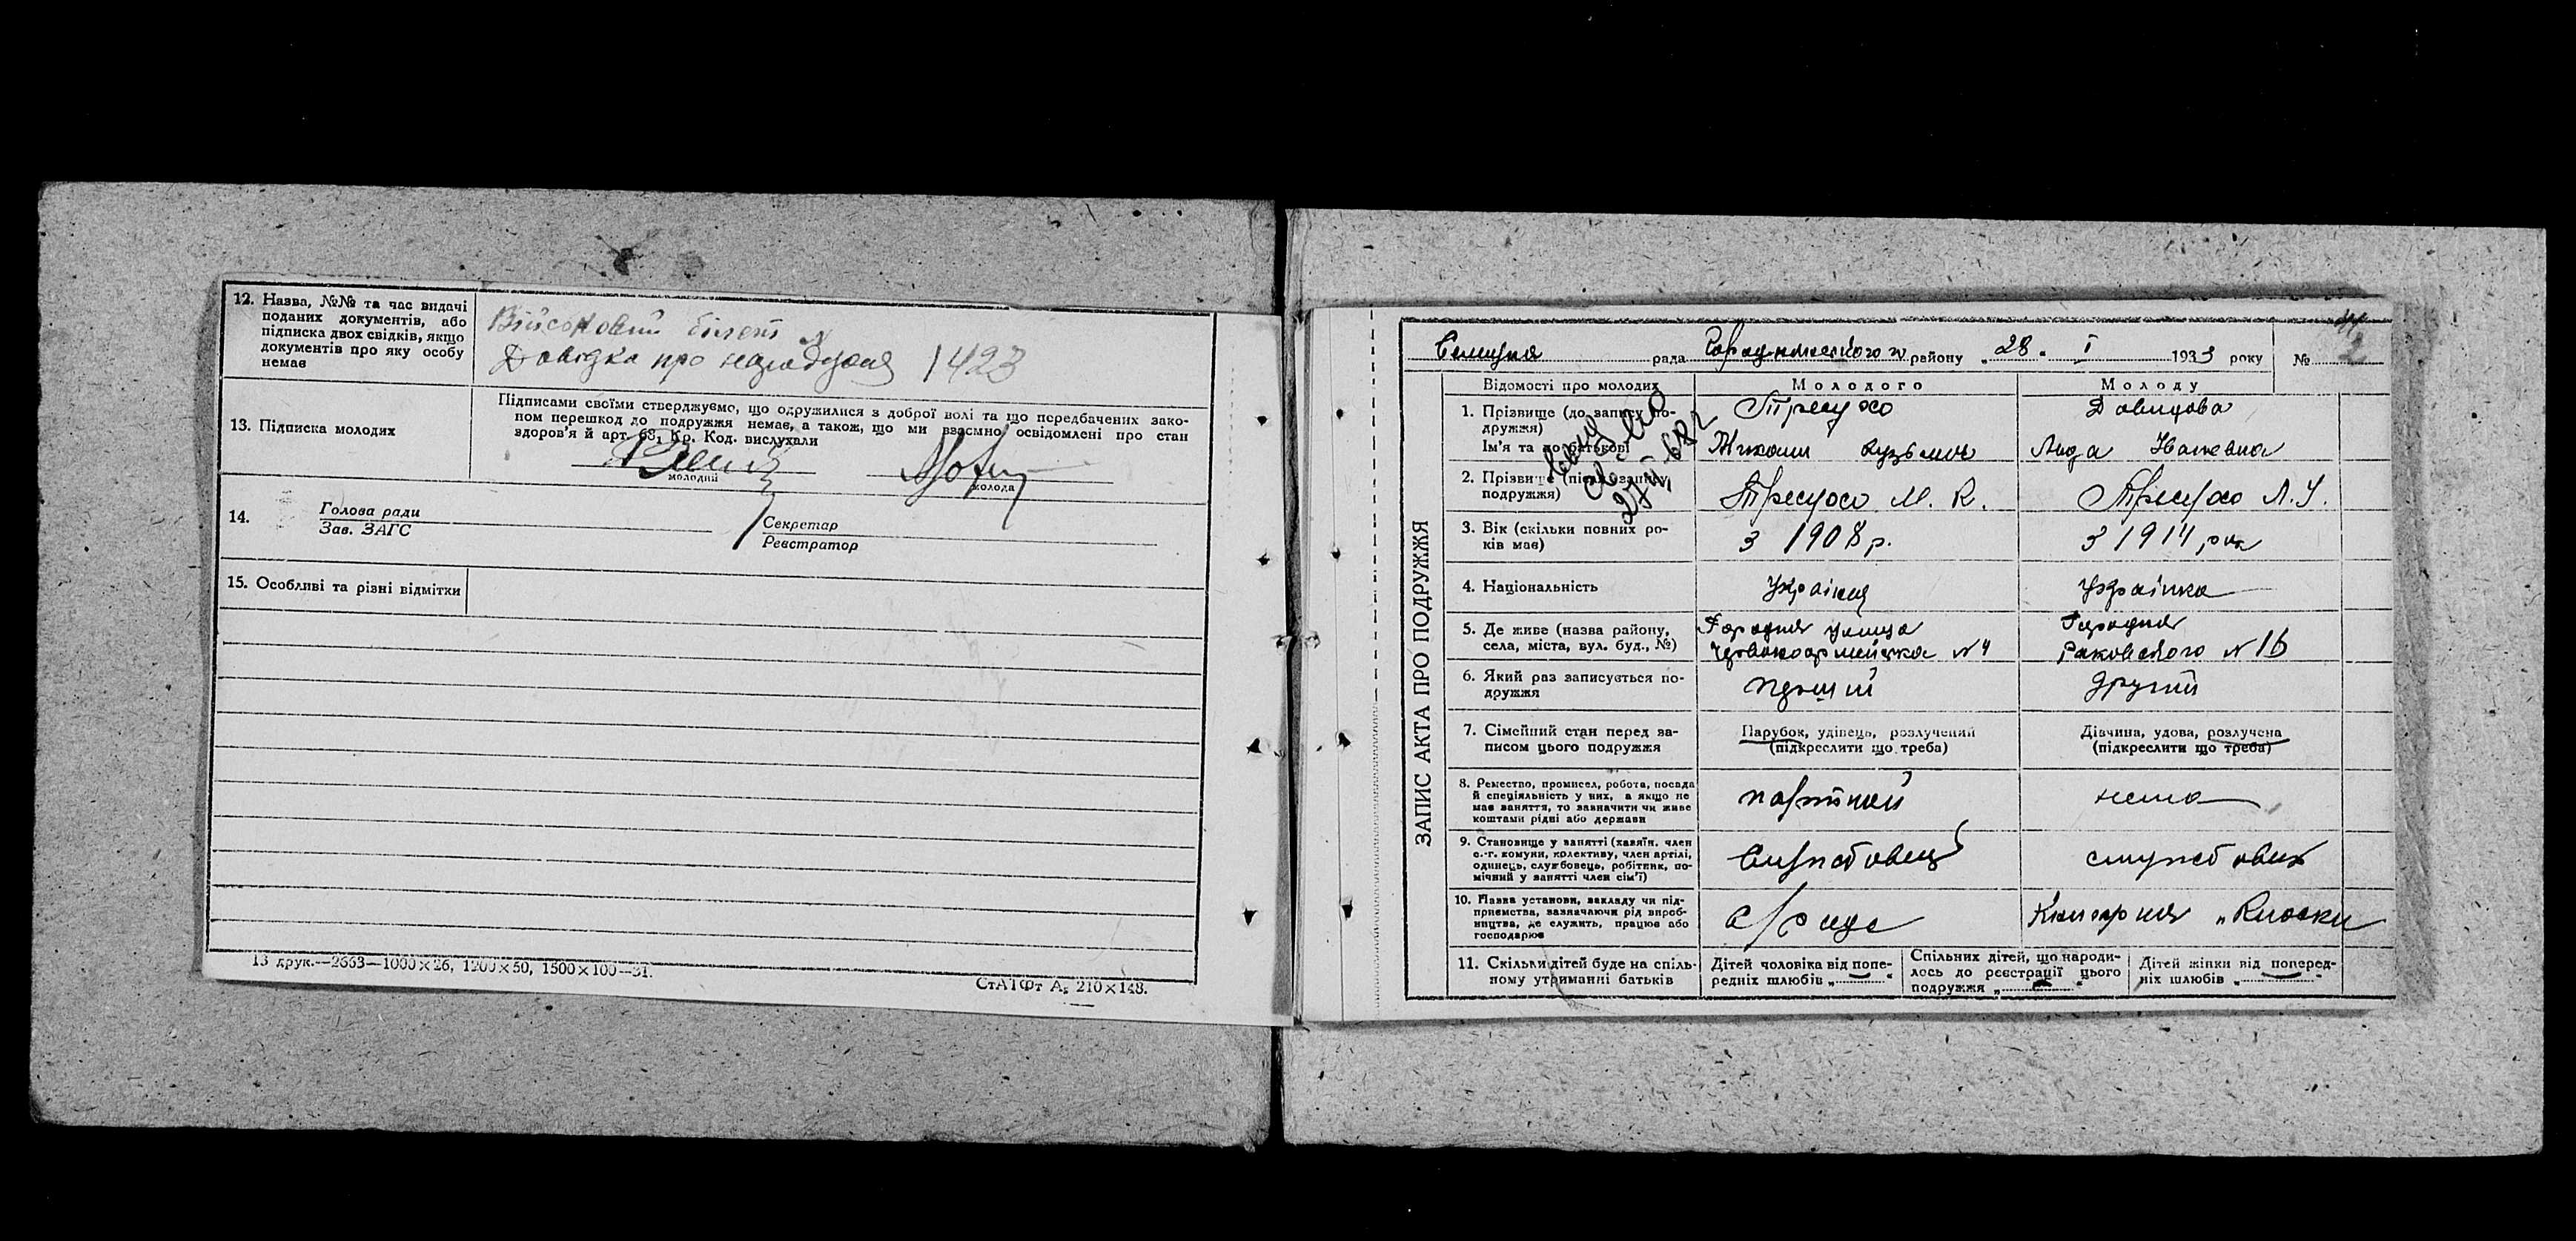 12. Назва, №№ та час видачі
поданих документів, або
підписка двох свідків, якщо
документів про яку особу
немає
Військовий білет №
Довідка про народження 1423
13. Підписка молодих
Підписами своїми стверджуємо, що одружилися з доброї волі та що передбачених зако-
ном перешкод до подружжя немає, а також, що ми взаємно освідомлені про стан
здоров'я й арт. 68, Кр. Код. вислухали
молодий
молода
14.
Голова ради
Зав. ЗАГС
Секретар
Реєстратор
15. Особливі та різні відмітки
13 друк.—2663—1000×26, 1200×50, 1500×100—31.
СтАТФт А₅ 210×148.
ЗАПИС АКТА ПРО ПОДРУЖЖЯ
рада району „28" I 1933 року № 2
Відомості про молодих
Молодого
Молоду
1. Прізвище (до запису по-
дружжя)
Ім'я та по батькові
Давидова
Кузьмич
Ліда Івановна
2. Прізвище (після запису
подружжя)
М. К.
Л. У.
3. Вік (скільки повних ро-
ків має)
з 1908 р.
з 1914 рок
4. Національність
Українц
Українка
5. Де живе (назва району,
села, міста, вул. буд., №)
Городня улица
Червоноармейська №4
Городня
Раковского № 16
6. Який раз записується по-
дружжя
перший
другий
7. Сімейний стан перед за-
писом цього подружжя
Парубок, удівець, розлучений
(підкреслити що треба)
Дівчина, удова, розлучена
(підкреслити що треба)
8. Ремество, промисел, робота, посада
й спеціяльність у них, а якщо не
має заняття, то зазначити чи живе
коштами рідні або держави
нема
9. Становище у занятті (хазяїн, член
с.-г. комуни, колективу, член артілі,
одинець, службовець, робітник, по-
мічний у занятті член сім'ї)
Службовец
службовец
10. Назва установи, закладу чи під-
приємства, зазначаючи рід вироб-
ництва, де служить, працює або
господарює
11. Скільки дітей буде на спіль-
ному утриманні батьків
Дітей чоловіка від попе-
редніх шлюбів „ "
Спільних дітей, що народи-
лось до реєстрації цього
подружжя „ "
Дітей жінки від поперед-
ніх шлюбів „ "